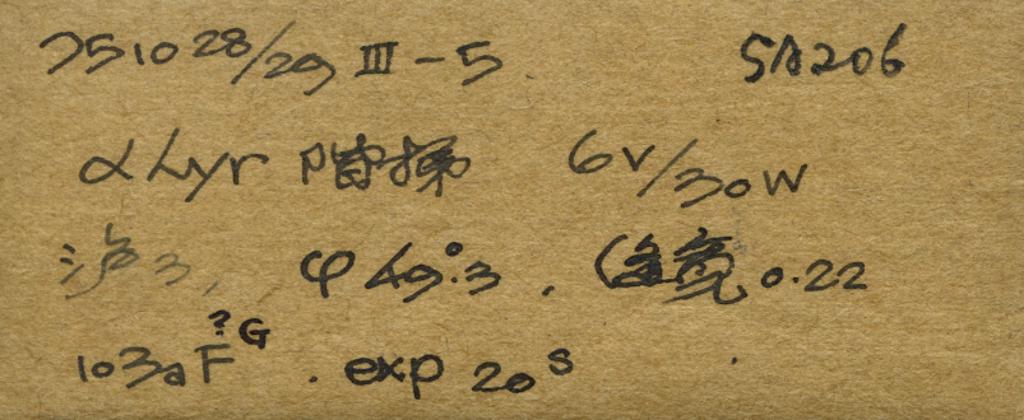 751028/29 III-5 SA206
α Lyr 階梯 6V/30W
φ 49°.3 . 0.22
103aF ?G . exp 20s